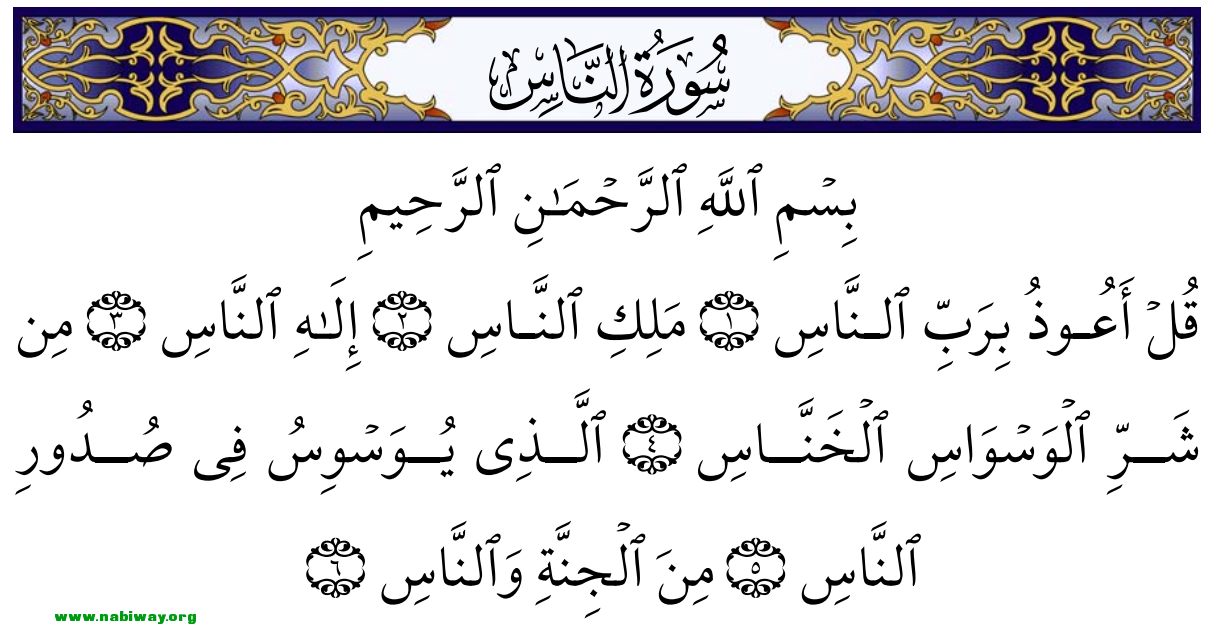 سُورَةُ النَّاسِ
بِسۡمِ ٱللَّهِ ٱلرَّحۡمَـٰنِ ٱلرَّحِيمِ
قُلۡ أَعُـوذُ بِرَبِّ ٱلـنَّاسِ ١ مَلِكِ ٱلنَّـاسِ ٢ إِلَـٰهِ ٱلنَّاسِ ٣ مِن
شَـرِّ ٱلۡوَسۡوَاسِ ٱلۡخَنَّـاسِ ٤ ٱلَّـذِى يُـوَسۡوِسُ فِى صُـدُورِ
ٱلنَّاسِ ٥ مِنَ ٱلۡجِنَّةِ وَٱلنَّاسِ ٦
www.nabiway.org